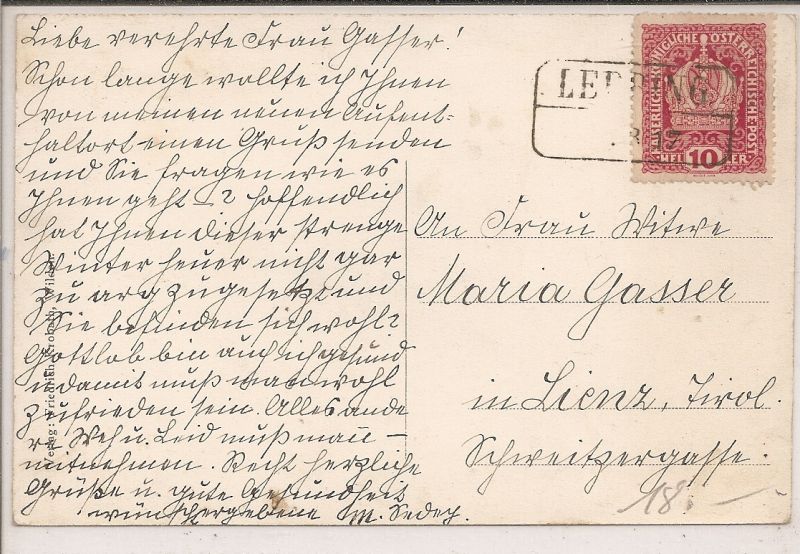 Liebe verehrte Frau Gasser!
Schon lange wollte ich Ihnen
von meinen neuen Aufent-
haltort einen Gruß senden
und Sie fragen wie es
Ihnen geht -? Hoffendlich
hat Ihnen dieser strenge
Winter heuer nicht gar
zu arg zugesetzt und
Sie befinden sich wohl?
Gottlob bin auch ich gesund
u. damit muß man wohl
zufrieden sein. Alles ande
re Weh u. Leid muß man –
mitnehmen. Recht herzliche
Grüße u. gute Gesundheit
wünscht ergebene M.
Verlag: Friedrich
KAISERLICHE KÖNIGLICHE ÖSTERREICHISCHE POST
10
17
An Frau Witwe
Maria Gasser
in Lienz, Tirol.
Schweitzergasse.
18.-